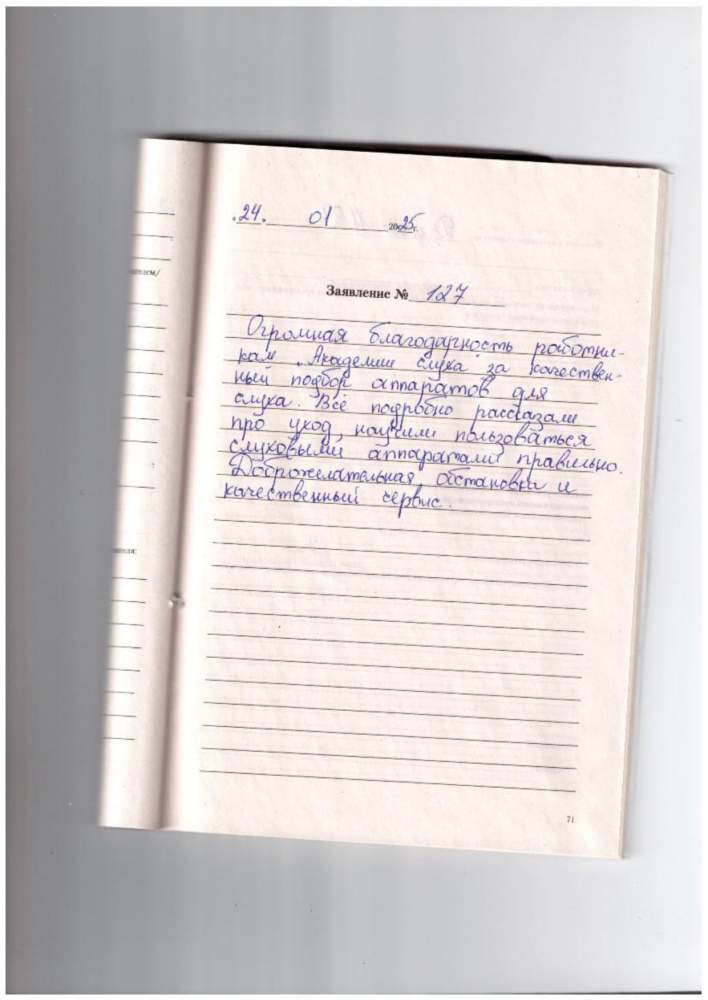 24. 01 2025г.
Заявление № 127
Огромная благодарность работни-
кам "Академии слуха" за качествен-
ный подбор аппаратов для
слуха. Всё подробно рассказали
про уход, научили пользоваться
слуховыми аппаратами правильно.
Доброжелательная обстановка и
качественный сервис.
71